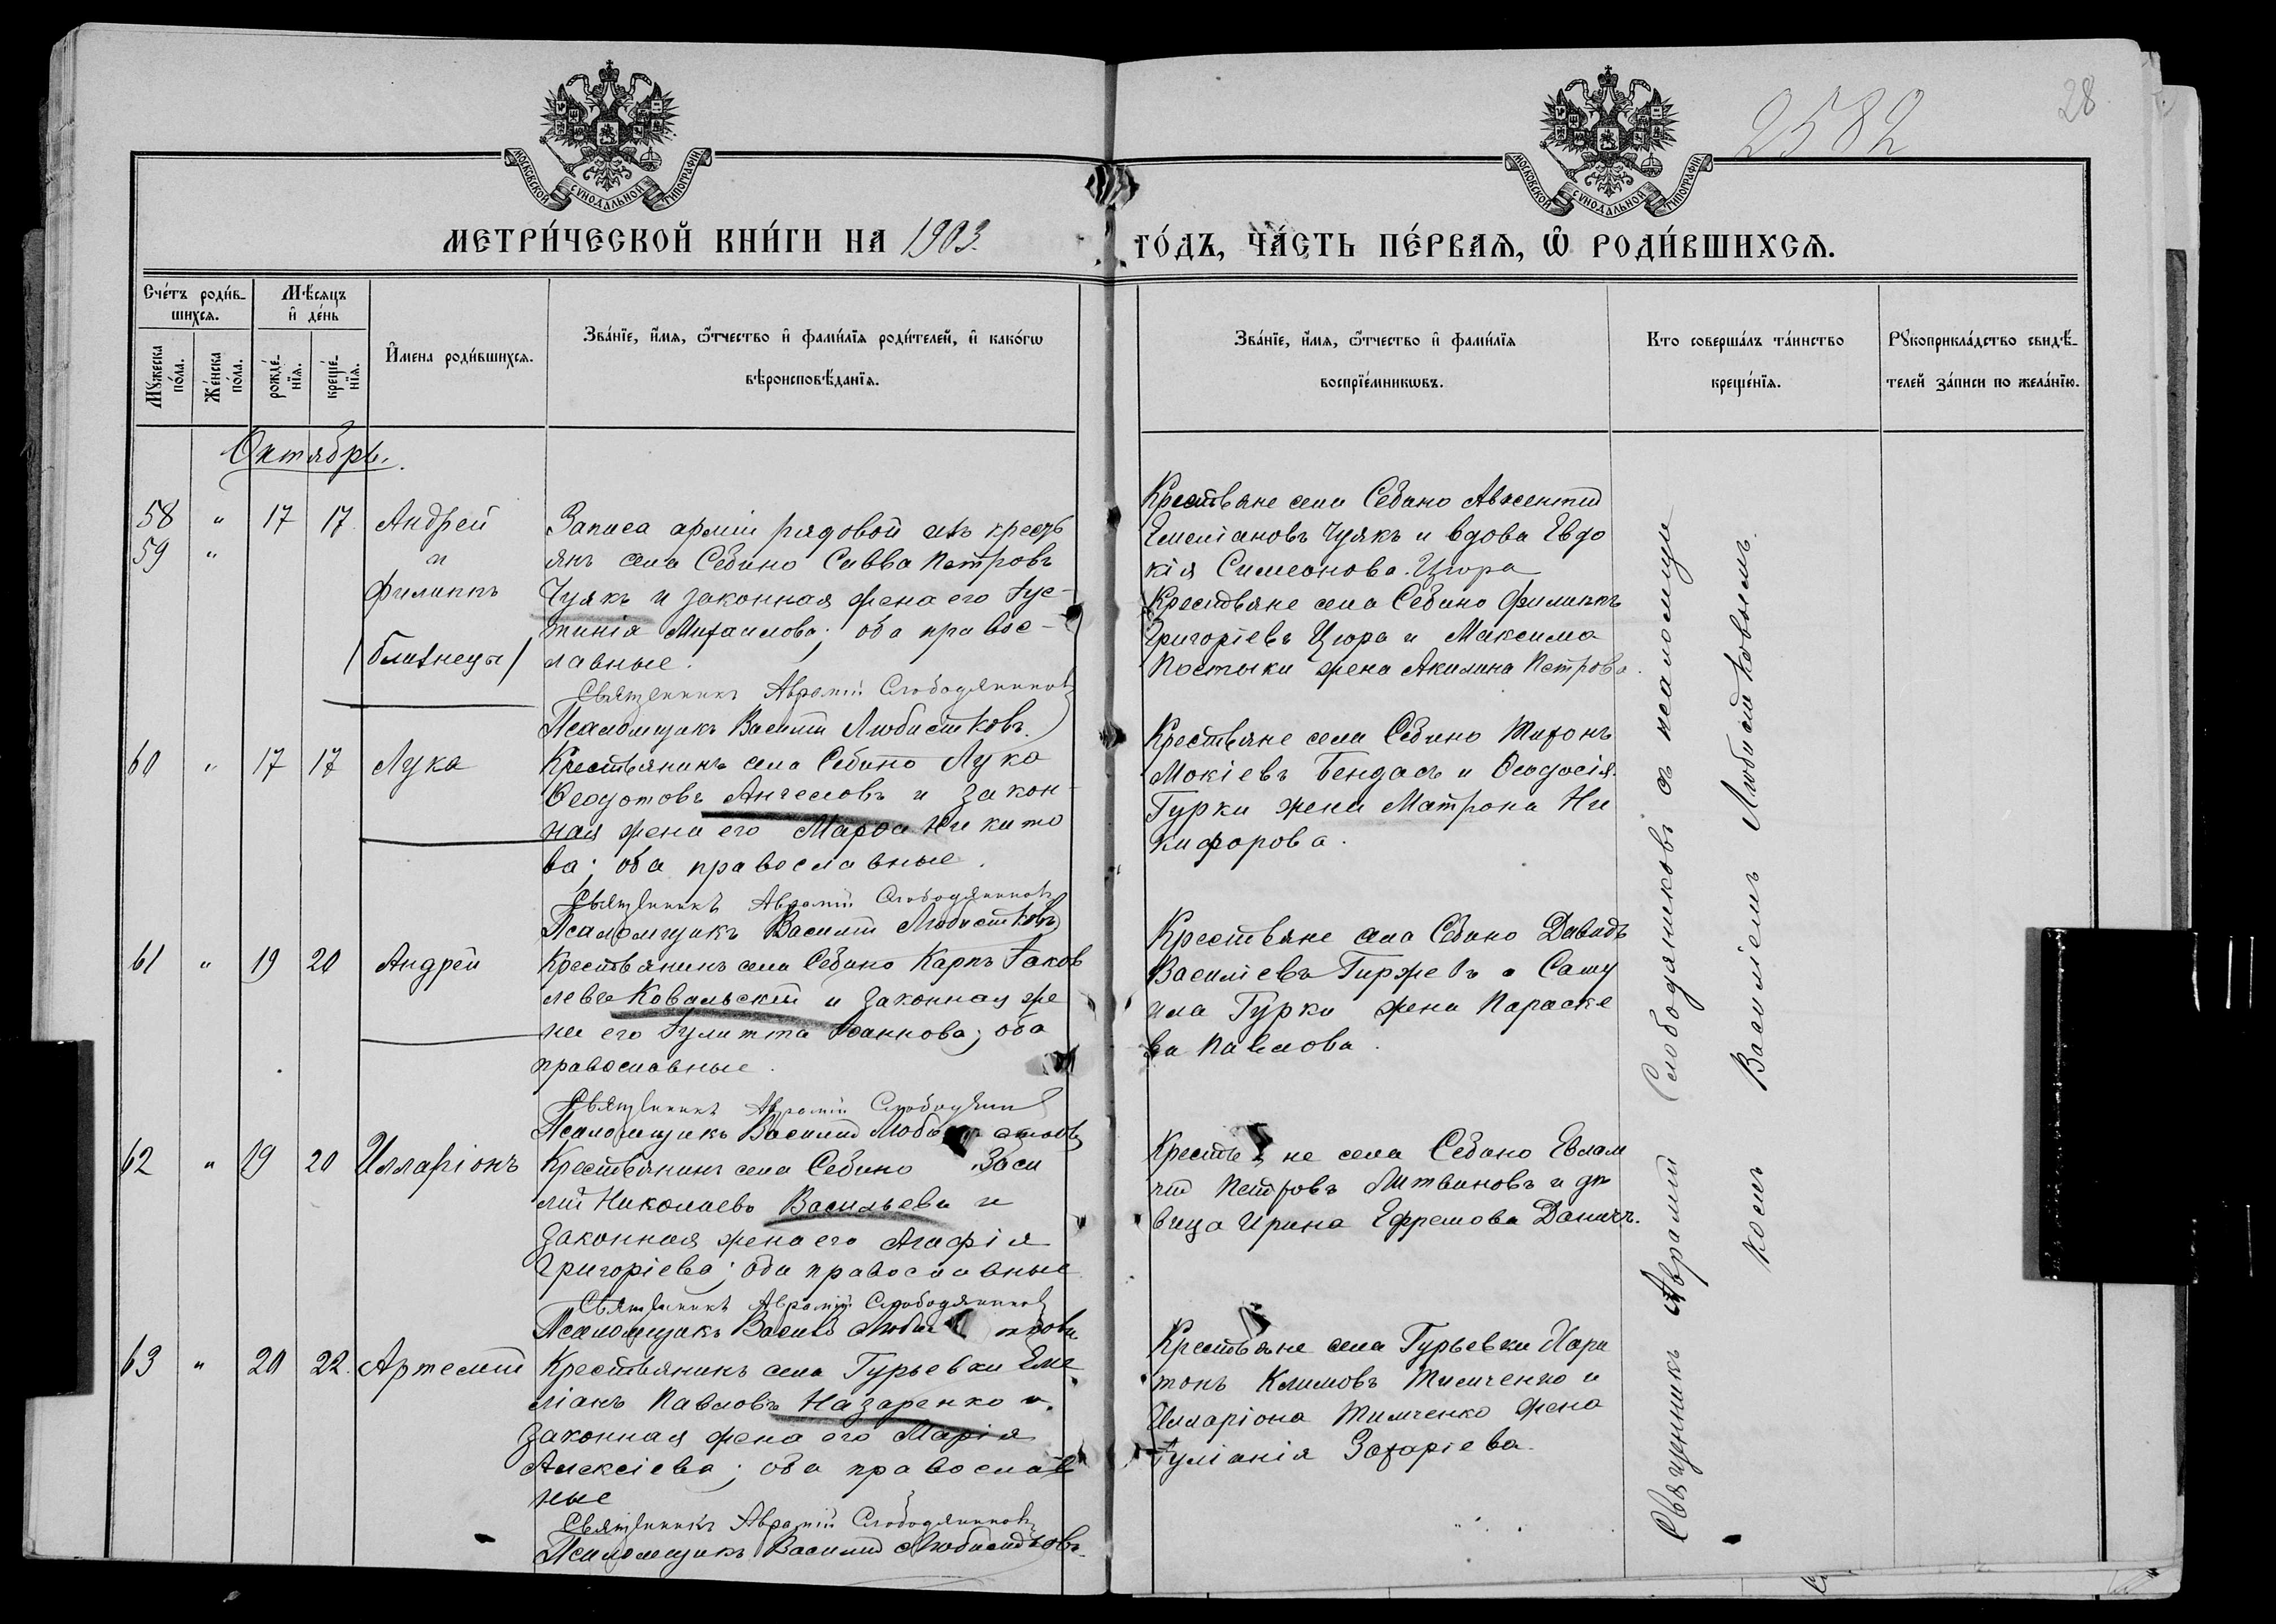 2582
28
МОСКОВСКОЙ СѴНОДАЛЬНОЙ ТИПОГРАФІИ.
МОСКОВСКОЙ СѴНОДАЛЬНОЙ ТИПОГРАФІИ.
МЕТРИ́ЧЕСКОЙ КНИ́ГИ НА 1903.
ГО́ДЪ, ЧА́СТЬ ПЕ́РВАѦ, Ѡ҆ РОДИ́ВШИХСѦ.
Сче́тъ роди́в-
шихсѧ.
Мѣ́сѧцъ
и҆ де́нь
Мꙋ́жеска
по́ла.
Же́нска
по́ла.
рожде́-
нїѧ.
креще́-
нїѧ.
И҆мена роди́вшихсѧ.
Зва́нїе, и҆́мѧ, ѻ҆́тчество и҆ фами́лїѧ роди́телей, и҆ како́гѡ
вѣроисповѣ́данїѧ.
Зва́нїе, и҆́мѧ, ѻ҆́тчество и҆ фами́лїѧ
воспрїе́мникѡвъ.
Кто соверша́лъ та́инство
креще́нїѧ.
Рꙋкоприкла́дство свидѣ́-
телей за́писи по жела́нїю.
Октябрь.
58 " 17 17 Андрей
59 "
и
Филиппъ
/близнецы/
Запаса арміи рядовой изъ кресть
янъ села Себино Савва Петровъ
Чуякъ и законная жена его Іус-
тинія Михаилова; оба правос-
лавные.
Священникъ Аврамій Слободяниковъ
Псаломщикъ Василій Любистковъ.
Крестьяне села Себино Авксентій
Емеліановъ Чуякъ и вдова Евдо
кія Симеонова Цюра
Крестьяне села Себино Филиппъ
Григоріевъ Цюра и Максима
Постыки жена Акилина Петрова.
60 " 17 17 Лука
Крестьянинъ села Себино Лука
Ѳеодотовъ Ангеловъ и закон-
ная жена его Марѳа Никито
ва; оба православные.
Священникъ Аврамій Слободяниковъ
Псаломщикъ Василій Любистковъ
Крестьяне села Себино Тихонъ
Мокіевъ Бендасъ и Ѳеодосія
Гурки жена Матрона Ни
кифорова.
61 " 19 20 Андрей
Крестьянинъ села Себино Карпъ Іаков
левъ Ковальскій и законная же
на его Іулитта Іоаннова; оба
православные.
Священникъ Аврамій
Псаломщикъ Василій
Крестьяне села Себино Давидъ
Василіевъ Гиржевъ и Саму
ила Гурки жена Параске
ва Павлова.
62 " 19 20 Илларіонъ
Крестьянинъ села Себино Васи
лій Николаевъ Васильевъ и
законная жена его Агафія
Григоріева; оба православные
Священникъ Аврамій Слободяниковъ
Псаломщикъ Василій
Крестьяне села Себино Евлам
пій Петровъ Литвиновъ и дѣ
вица Ирина Ефремова Даничъ.
63 " 20 22. Артемій
Крестьянинъ села Гурьевки Еме
ліанъ Павловъ Назаренко и
законная жена его Марія
Алексіева; оба православ
ные
Священникъ Аврамій Слободяниковъ
Псаломщикъ Василій Любистковъ.
Крестьяне села Гурьевки Хари
тонъ Климовъ Тимченко и
Илларіона Тимченко жена
Іуліанія Захаріева.
Священникъ Аврамій Слободяниковъ съ псаломщи
комъ Василіемъ Любистковымъ.